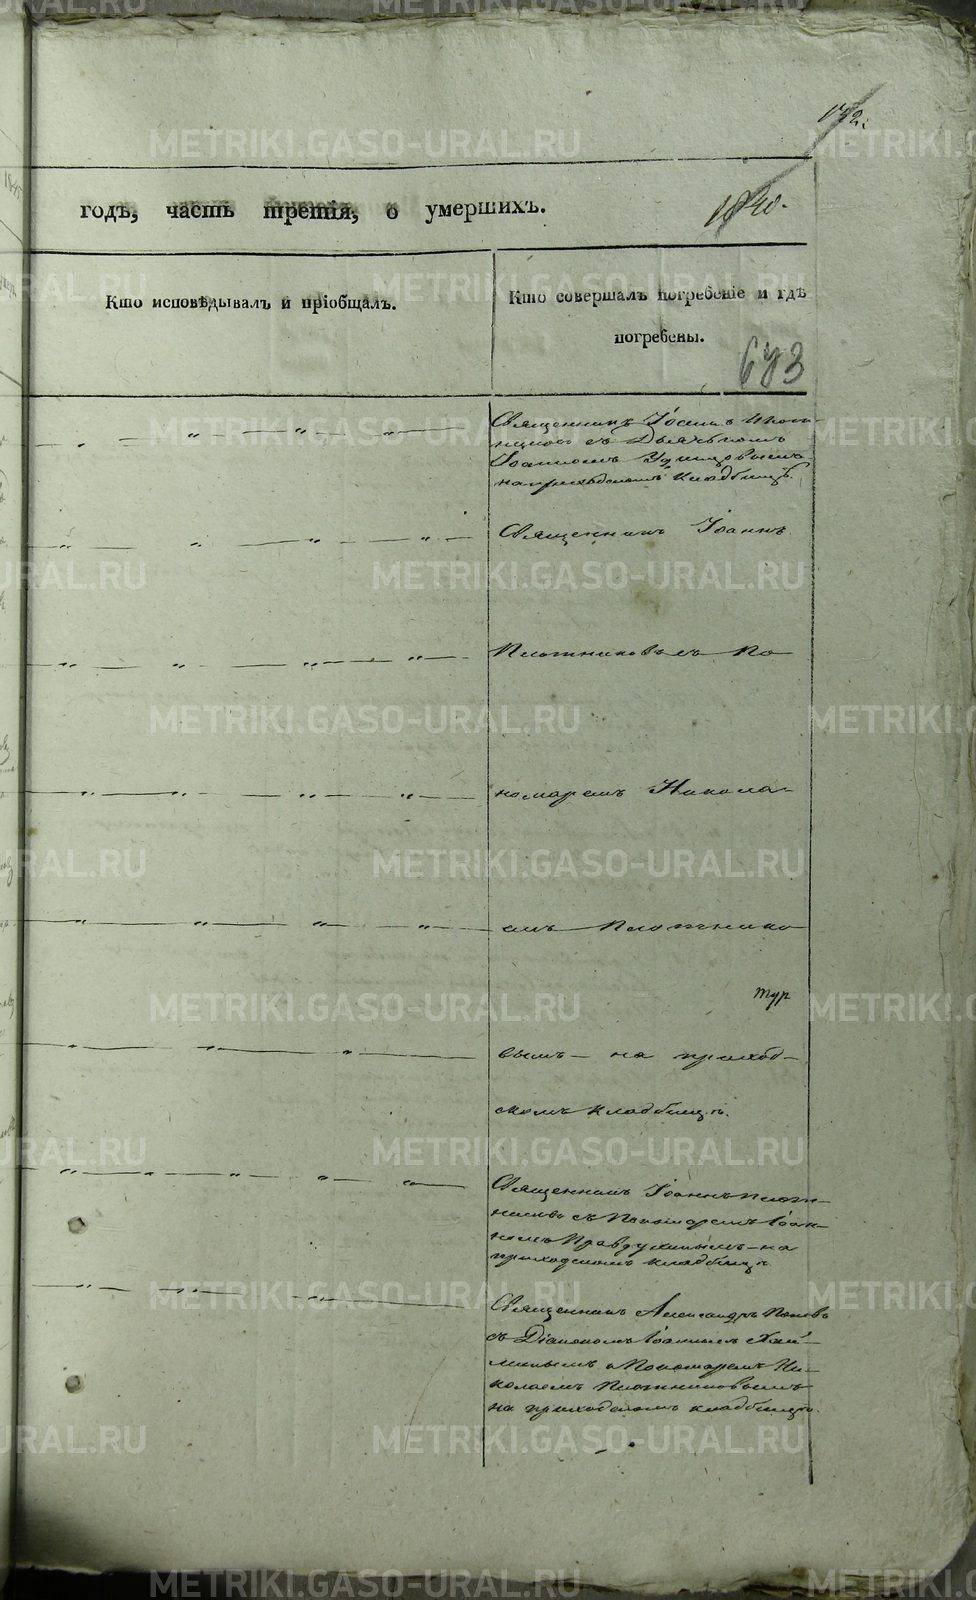 годъ, часть третія, о умершихъ.
Кто исповѣдывалъ и пріобщалъ.
Кто совершалъ погребеніе и гдѣ
погребены.
Священникъ
съ Дьячькомъ
Іоанномъ
на приходскомъ кладбищѣ.
Священникъ Іоаннъ
Плотниковъ съ По
номаремъ Никола-
емъ Плотнико
вымъ - на приход-
скомъ кладбищѣ.
Священникъ Іоаннъ Плот-
никовъ съ Пономаремъ Іоан-
номъ Правдухинымъ - на
приходскомъ кладбищѣ.
Священникъ Александръ Поповъ
съ Діакономъ Іоанномъ
и Пономаремъ Ни-
колаемъ Плотниковымъ
на приходскомъ кладбищѣ.
METRIKI.GASO-URAL.RU